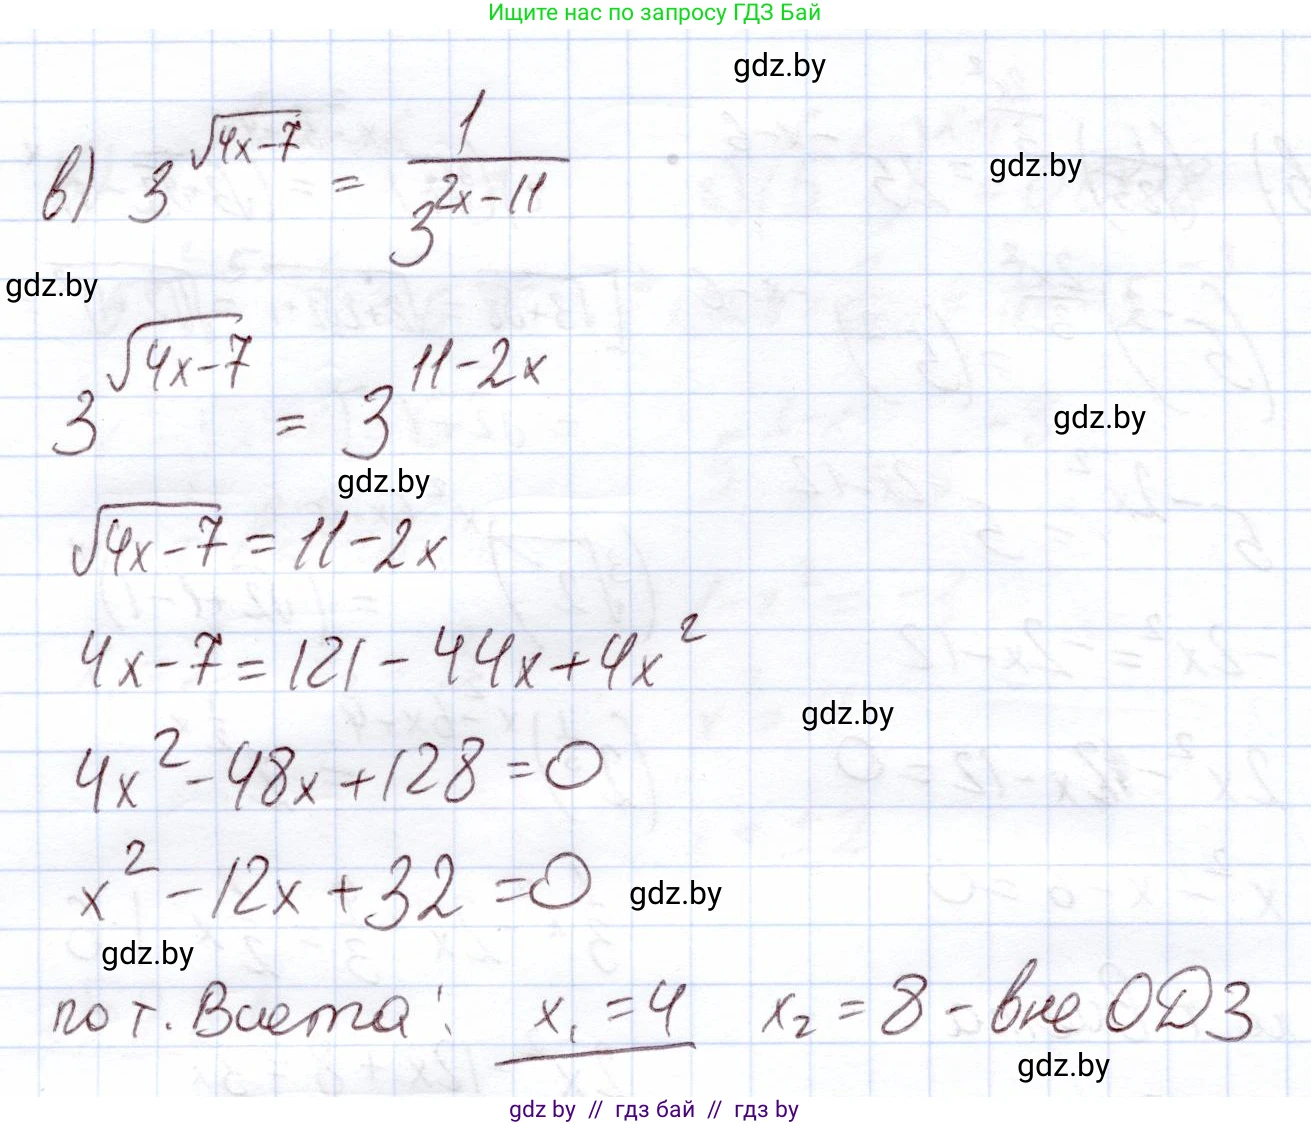 Ищите нас по запросу ГДЗ Бай
gdz.by
в) 3^√(4x-7) = 1/3^(2x-11)
gdz.by
gdz.by
3^√(4x-7) = 3^(11-2x)
gdz.by
gdz.by
√(4x-7) = 11-2x
4x-7 = 121-44x+4x²
gdz.by
4x²-48x+128=0
x²-12x+32=0
gdz.by
gdz.by
по т. Виета: x₁=4 x₂=8 - вне ОДЗ
gdz.by
gdz by // гдз бай // гдз by